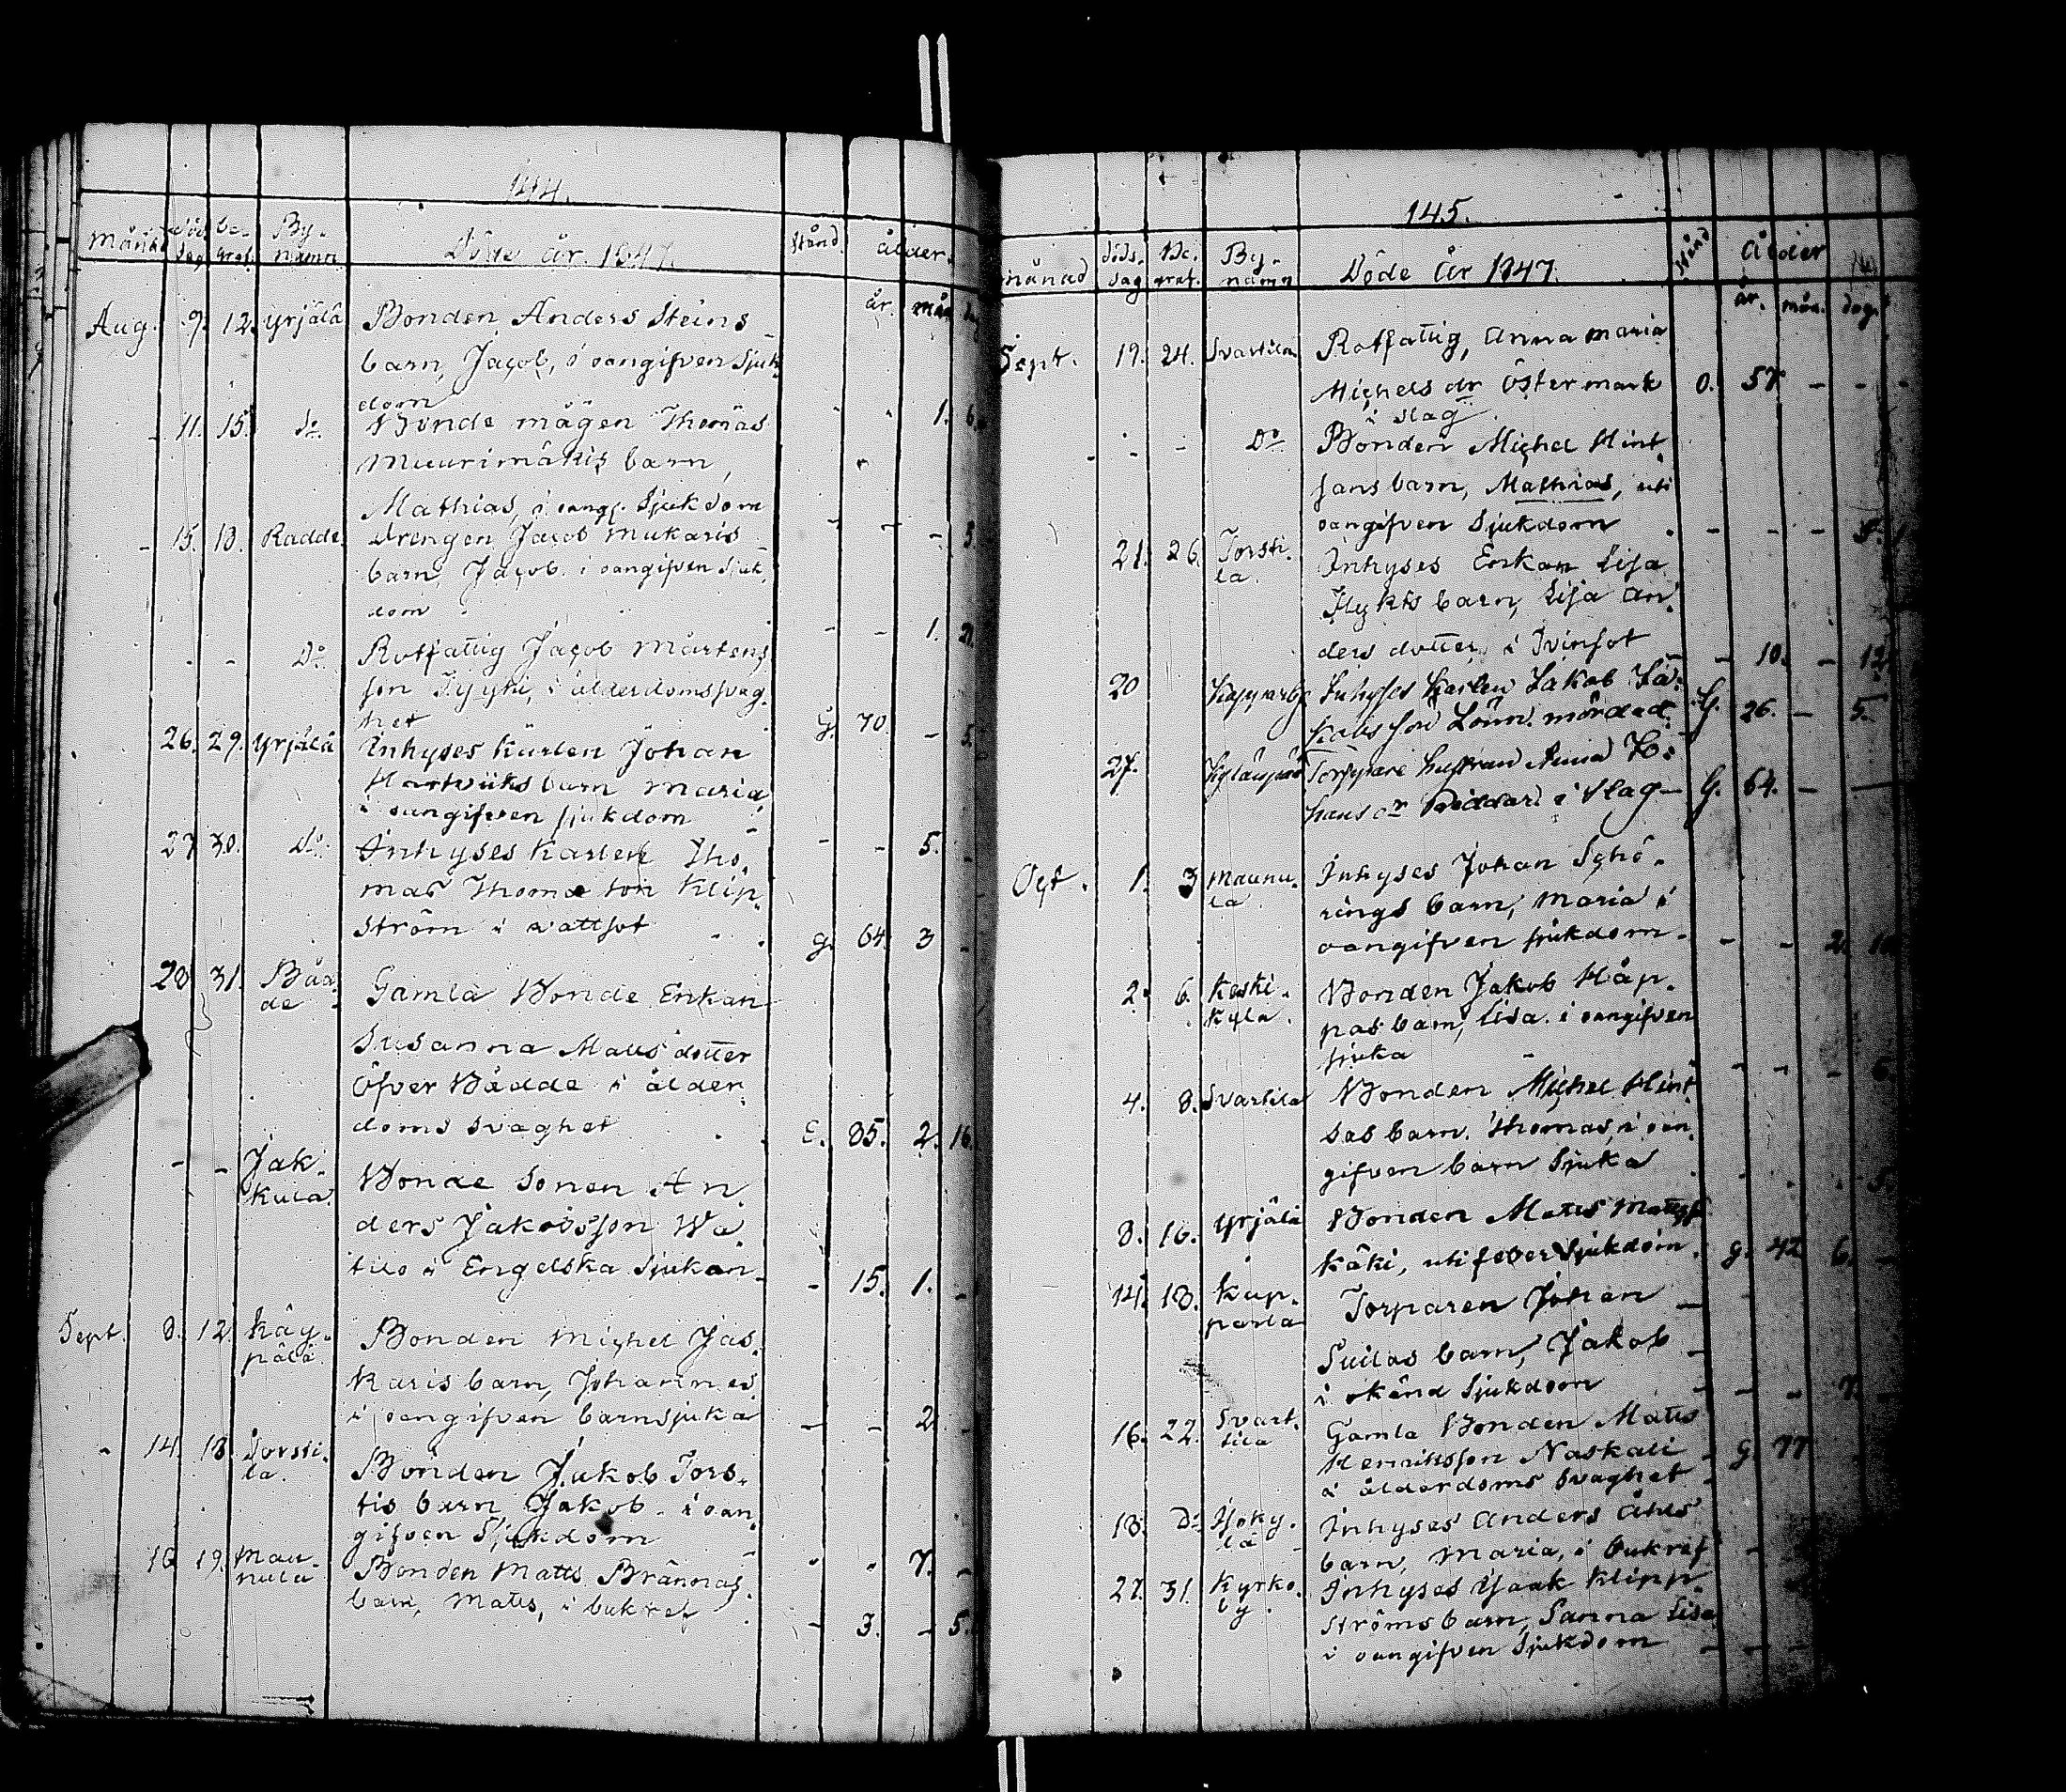 144.
Månad döds dag be-graf. By-namn Döde År 1847. stånd ålder.
år. mån. dag
Aug. 9. 12. Yrjälä Bonden Anders Steins
barn, Jacob, i oangifven Sjuk
dom 1. 6.
11. 15. Do Bonde mågen Thomas
Muurimäkis barn,
Mathias, i oangf. Sjukdom - - - 5.
15. 18. Radde. Drengen Jacob Mukaris
barn, Jacob. i oangifven Sjuk
dom - - 1. 21.
- - Do Rotfattig Jacob Mårtens
son Tyyki, i ålderdomssvag
het G. 70. - 5.
26. 29. Yrjälä Inhyses Karlen Johan
Hartviks barn Maria
i oangifven sjukdom - - 5. -
27. 30. Do Inhyses Karlen Tho
mas Thomæ son Klip
ström i vattsot G. 64. 3 -
28. 31. Båa
de Gamla Bonde Enkan
Susanna Matts dotter
Öfver Bådde i ålder
doms svaghet E. 85. 2. 16.
- - Jak
kula Bonde Sonen An
ders Jakobsson Wa
tilo i Engelska Sjukan - 15. 1. -
Sept. 8. 12. Käy-
pälä Bonden Michel Jas
karis barn, Johannes
i oangifven barnsjuka - - 2. -
- 14. 18. Torsti-
la. Bonden Jakob Tors-
tis barn Jakob. i oan
gifven Sjukdom - - 7. -
16 19. Mau-
nula Bonden Matts Brännas
barn, Matts, i bukref - 3. - 5.
145.
månad döds-dag Be-graf. By-namn Döde År 1847. stånd Ålder
år. mån. dag.
Sept. 19. 24. Svartila Rotfattig, Anna Maria
Michels dr Östermark O. 57. - - -
i slag.
- - - Do Bonden Michel Hint
sans barn, Mathias, uti
oangifven Sjukdom - - - 5.
21. 26. Torsti-
la. Inhyses Enkan Lisa
Flykts barn, Lisa An
ders dotter, i Tvinsot - 10. - 12.
20 Inhyses Karlen Jakob Ja-
kobsson Lönn. mördad. G. 26. - 5.
27. Torpare hustrun Anna Jo-
hans dr i Slag - G. 64. - -
Oct. 1. 3 Maunu-
la. Inhyses Johan Schö-
rings barn, Maria i
oangifven sjukdom. - - 2.
2. 6. Keski-
kylä. Bonden Jakob Håp-
pas barn, Lisa. i oangifven
sjuka - - - 6.
4. 8. Svartila Bonden Michel Hint
sas barn. Thomas, i oan
gifven barn Sjuka - - - 5.
8. 16. Yrjälä Bonden Matts Mattss
Käki, uti feber Sjukdom. G. 42 6. -
14. 18. Kap-
parla Torparen Johan
Suilas barn, Jakob
i okänd Sjukdom - - - 7. -
16. 22. Svart-
tila Gamla Bonden Matts
Henriksson Naskali - G. 77
i ålderdoms Svaghet
18. Do Isoky-
lä Inhyses Anders Ahls
barn, Maria, i bukref -
27. 31. Kyrko-
by. Inhyses Isaak Klipp-
ströms barn, Sanna Lisa
i oangifven Sjukdom - - -